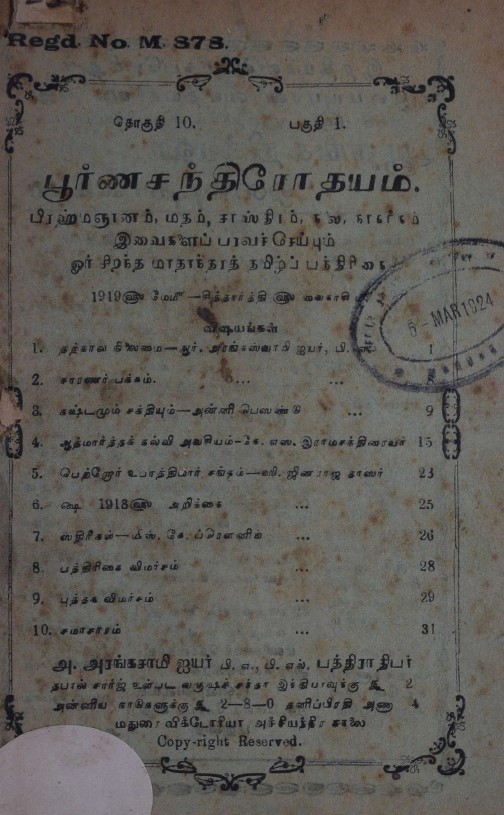 Regd. No. M. 878.
தொகுதி 10. பகுதி 1.
பூர்ணசந்திரோதயம்.
பிரஹ்மஞானம், மதம், சாஸ்திரம், கலை, நாகரிகம்
இவைகளைப் பரவச்செய்யும்
ஓர் சிறந்த மாதாந்தரத் தமிழ்ப் பத்திரிகை
1919௵ மே௴ —சித்தார்த்தி௵ வைகாசி
விஷயங்கள்
1. தற்கால நிலைமை—ஆர். அரங்கஸ்வாமி ஐயர், பி. 1
2. சாரணர் பக்கம். ... ...
3. கஷ்டமும் சக்தியும்—அன்னி பெஸண்டு ... 9
4. ஆத்மார்த்தக் கல்வி அவசியம்-கே. எஸ். இராமசந்திரையர் 15
5. பெற்றோர் உபாத்திமார் சங்கம்— ஜினராஜ தாஸர் 23
6. ௸ 1918௵ அறிக்கை ... 25
7. ஸ்திரீகள்—மிஸ். கே. ப்ரௌனிங் ... 26
8. பத்திரிகை விமர்சம் ... 28
9. புத்தக விமர்சம் ... 29
10. சமாசாரம் ... 31
அ. அரங்கசாமி ஐயர் பி. எ., பி. எல். பத்திராதிபர்
தபால் சார்ஜ் உள்பட வருஷச் சந்தா இந்தியாவுக்கு ரூ 2
அன்னிய நாடுகளுக்கு ரூ 2—8—0 தனிப்பிரதி அணா 4
மதுரை விக்டோரியா அச்சியந்திர சாலை
Copy-right Reserved.
5-MAR1924